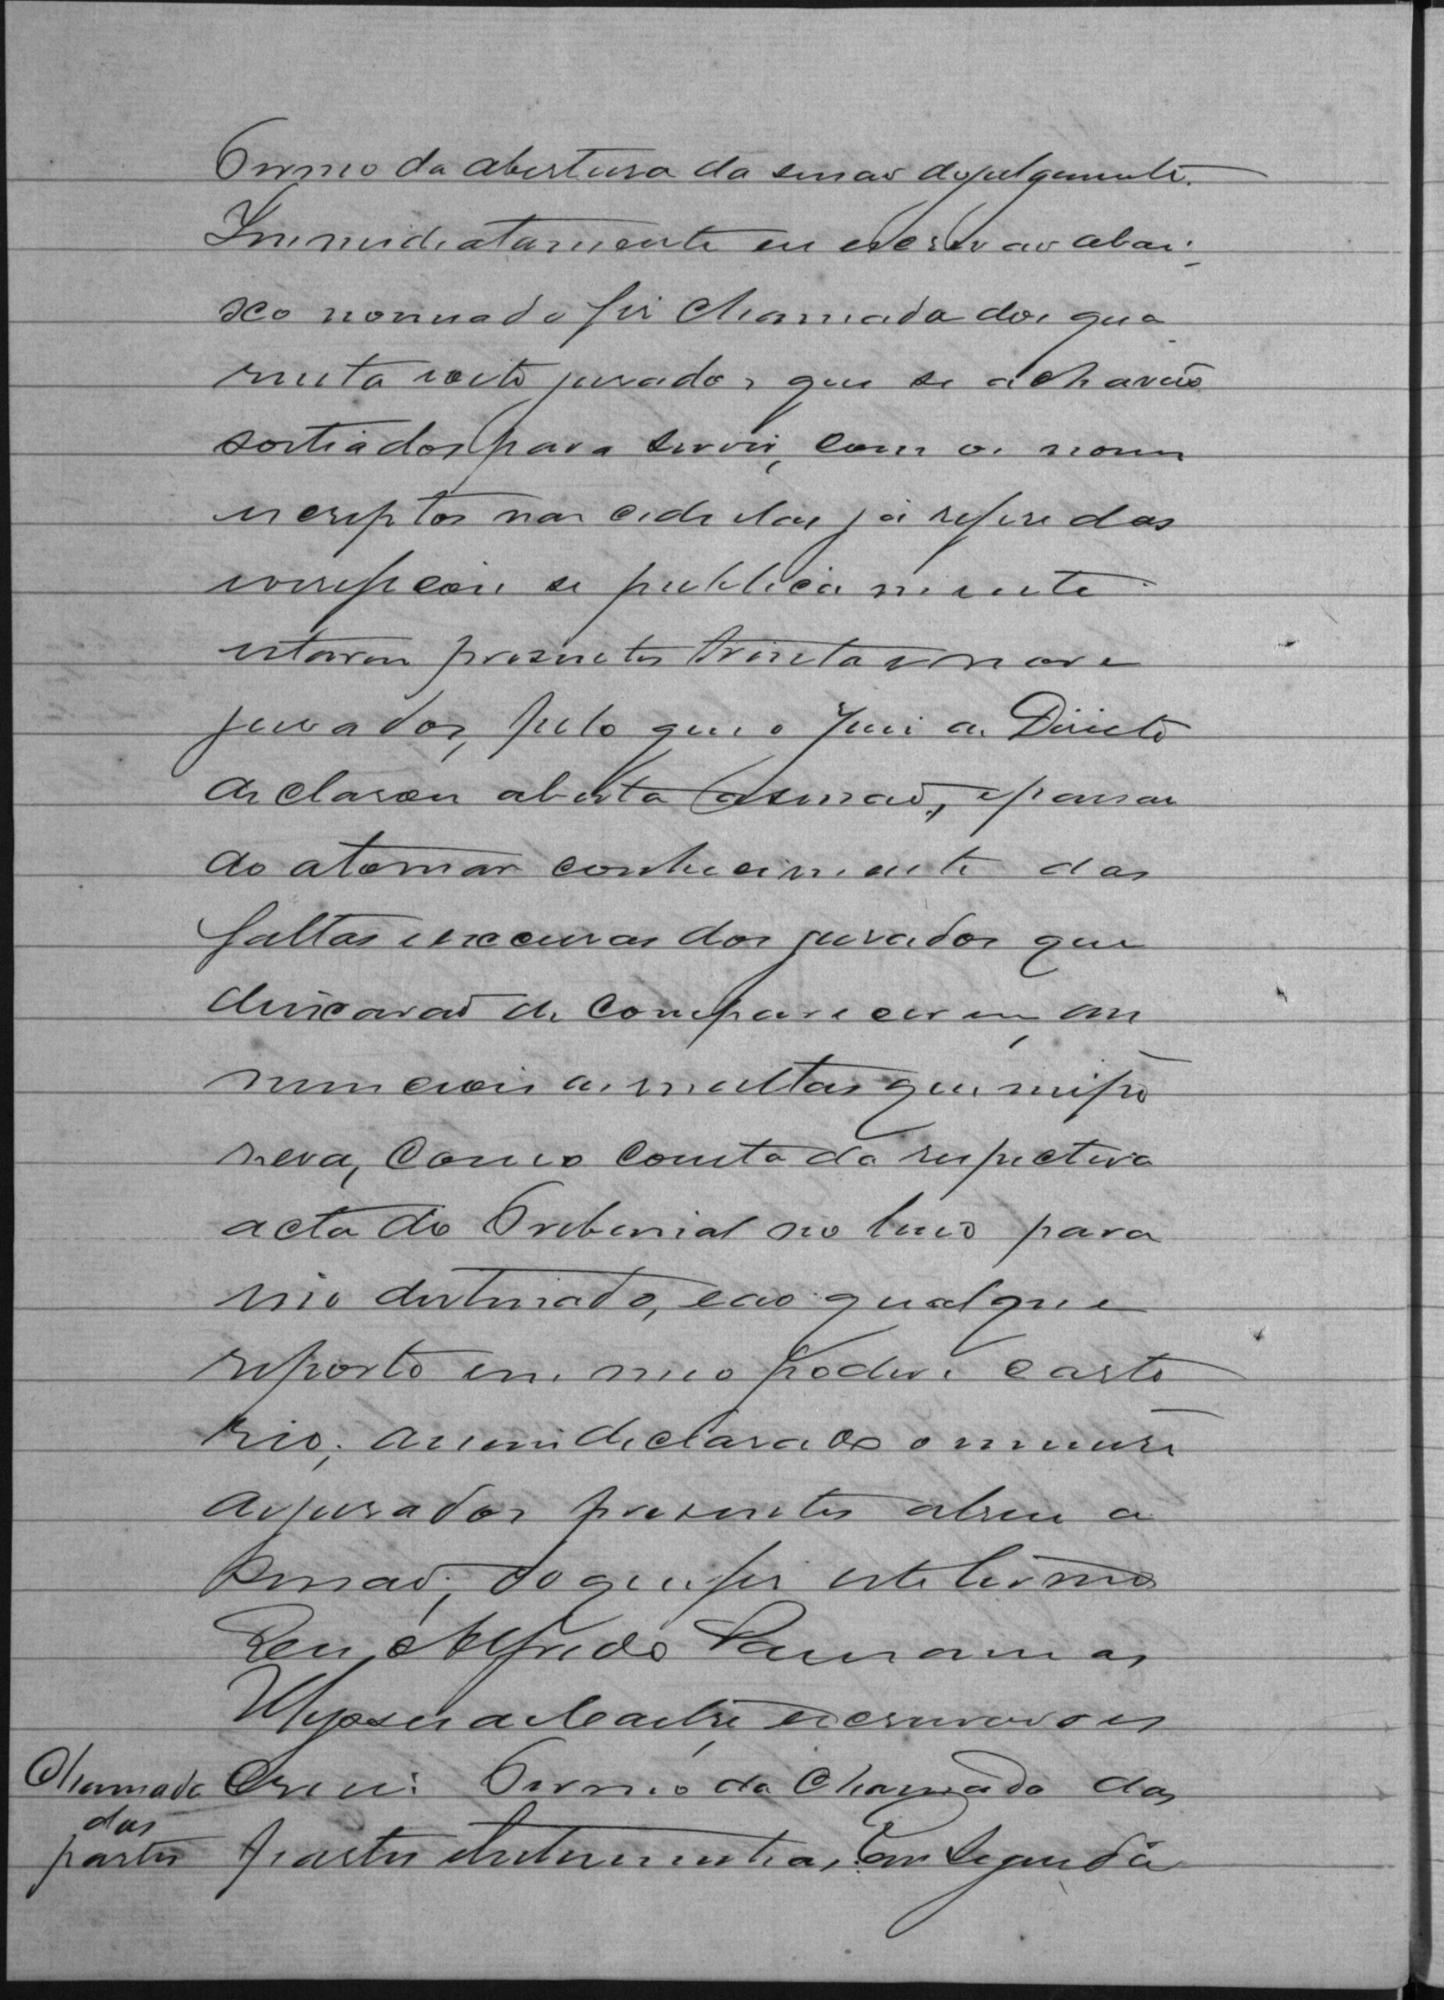 Termo da abertura da sessão do julgamento.
Immediatamente eu escrivão abai-
xo nomeado fiz chamada dos qua
renta e oito jurados que se achavão
sortiados para servir, com os nomes
escriptos nas cedulas já referidas
e verificou se publicamente
estarem presentes trinta e nove
jurados, pelo que o Juiz de Direito
declarou aberta a sessão, e passan
do a tomar conhecimento das
faltas e excusas dos jurados que
deixarão de comparecerem, an
nunciou as multas que impo
sera, como consta da respectiva
acta do Tribunal no livro para
isso destinado, e ao qual que
reporto em meo poder e carto
rio; assim declarado o numero
de jurados presentes abriu a
sessão; do que fiz este termo
Eu, Alfredo
Ulysses de Castro, escrivão o es
crevi. Termo da chamada das
partes e testemunhas. Em seguida
Chamada
das
partes